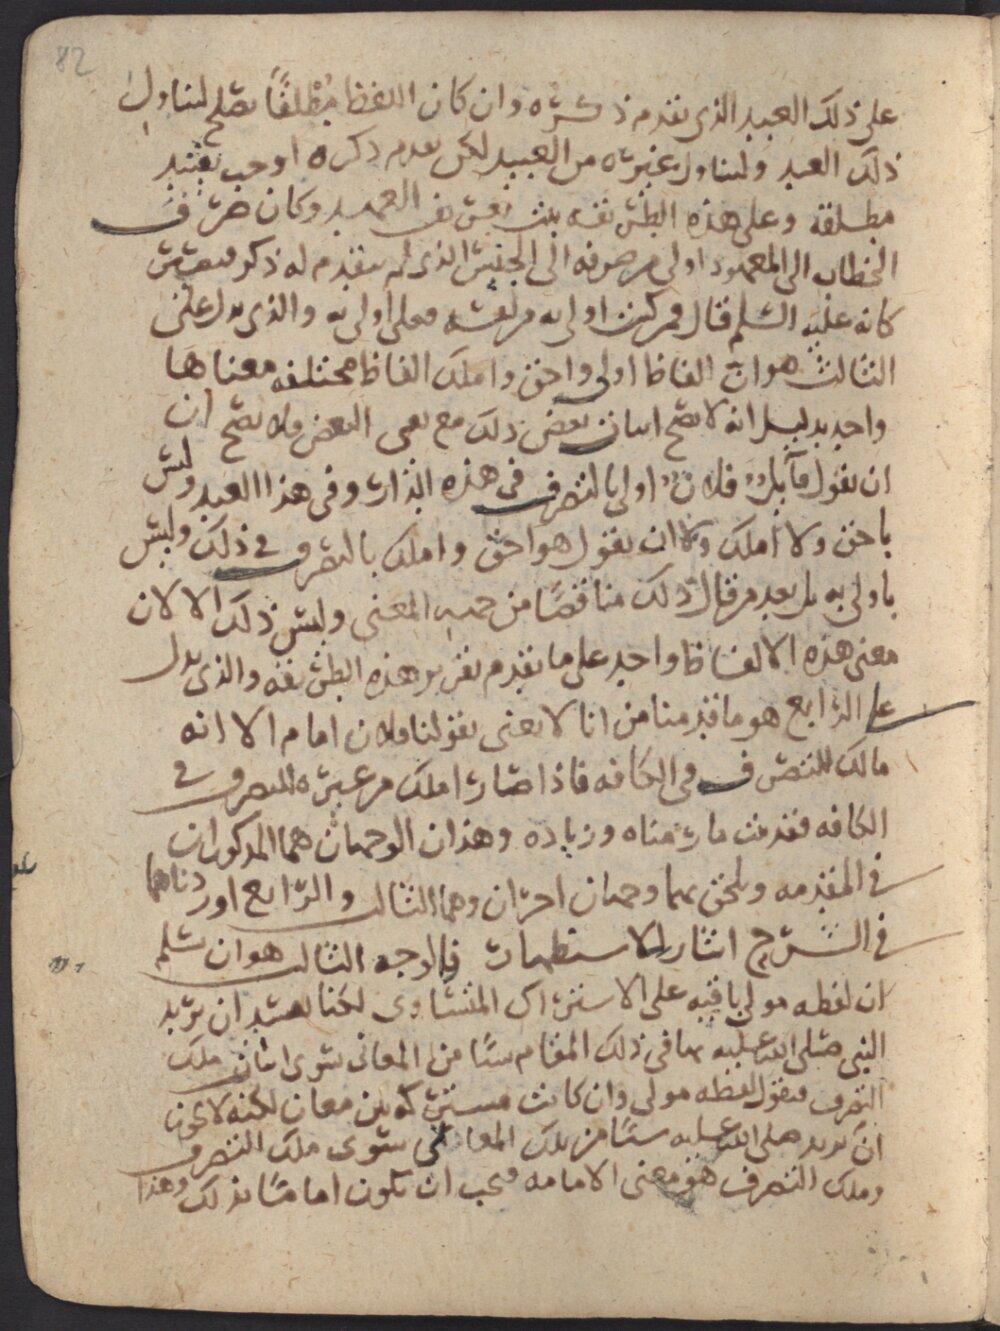 82
على ذلك العبد الذي تقدم ذكره وان كان اللفظ مطلقًا يصلح لتناول
ذلك العبد ولتناول غيره من العبيد لكن تقدم ذكره اوجب تقييد
مطلقه وعلى هذه الطريقه يثبت تعريف العهد وكان صرف
الخطاب الى المعهود اولى من صرفه الى الجنس الذي لم يتقدم له ذكر فيصير
كانه عليه السلم قال فمن كنت اولى به من نفسه فعلي اولى به والذي يدل على
الثالث هو ان الفاظ اولى واحق واملك الفاظ مختلفه معناها
واحد بدليل انه لا يصح اثبات بعض ذلك مع نفي البعض فلا يصح ان
ان يقول قآيل فلان اولى بالتصرف في هذه الدار وفي هذا العبد وليس
باحق ولا املك ولا ان يقول هو احق واملك بالتصرف في ذلك وليس
باولى به بل يعد من قال ذلك مناقضًا من جهه المعنى وليس ذلك الا لان
معنى هذه الالفاظ واحد على ما تقدم تقرير هذه الطريقه والذي يدل
على الرابع هو ما قدمنا من انا لا نعني بقولنا فلان امام الا انه
مالك للتصرف في الكافه فاذا صار املك من غيره للتصرف في
الكافه فقد معناه وزياده وهذان الوجهان هما المذكوران
في المقدمه ويلحق بهما وجهان اخران وهما الثالث والرابع اوردناهما
في الشرح للاستظهار فالوجه الثالث هو ان نسلم
ان لفظه مولى باقيه على الاشتراك المتساوي لكنا ان يريد
النبي صلى الله عليه بها في ذلك المقام شيًا من المعاني سوى اثبات ملك
التصرف فيقول لفظه مولى وان كانت مشتركه بين معان لكنه لا يجوز
ان يريد صلى الله عليه شيًا من تلك المعاني سوى ملك التصرف
وملك التصرف هو معنى الامامه فيجب ان يكون امامًا بذلك وهذا